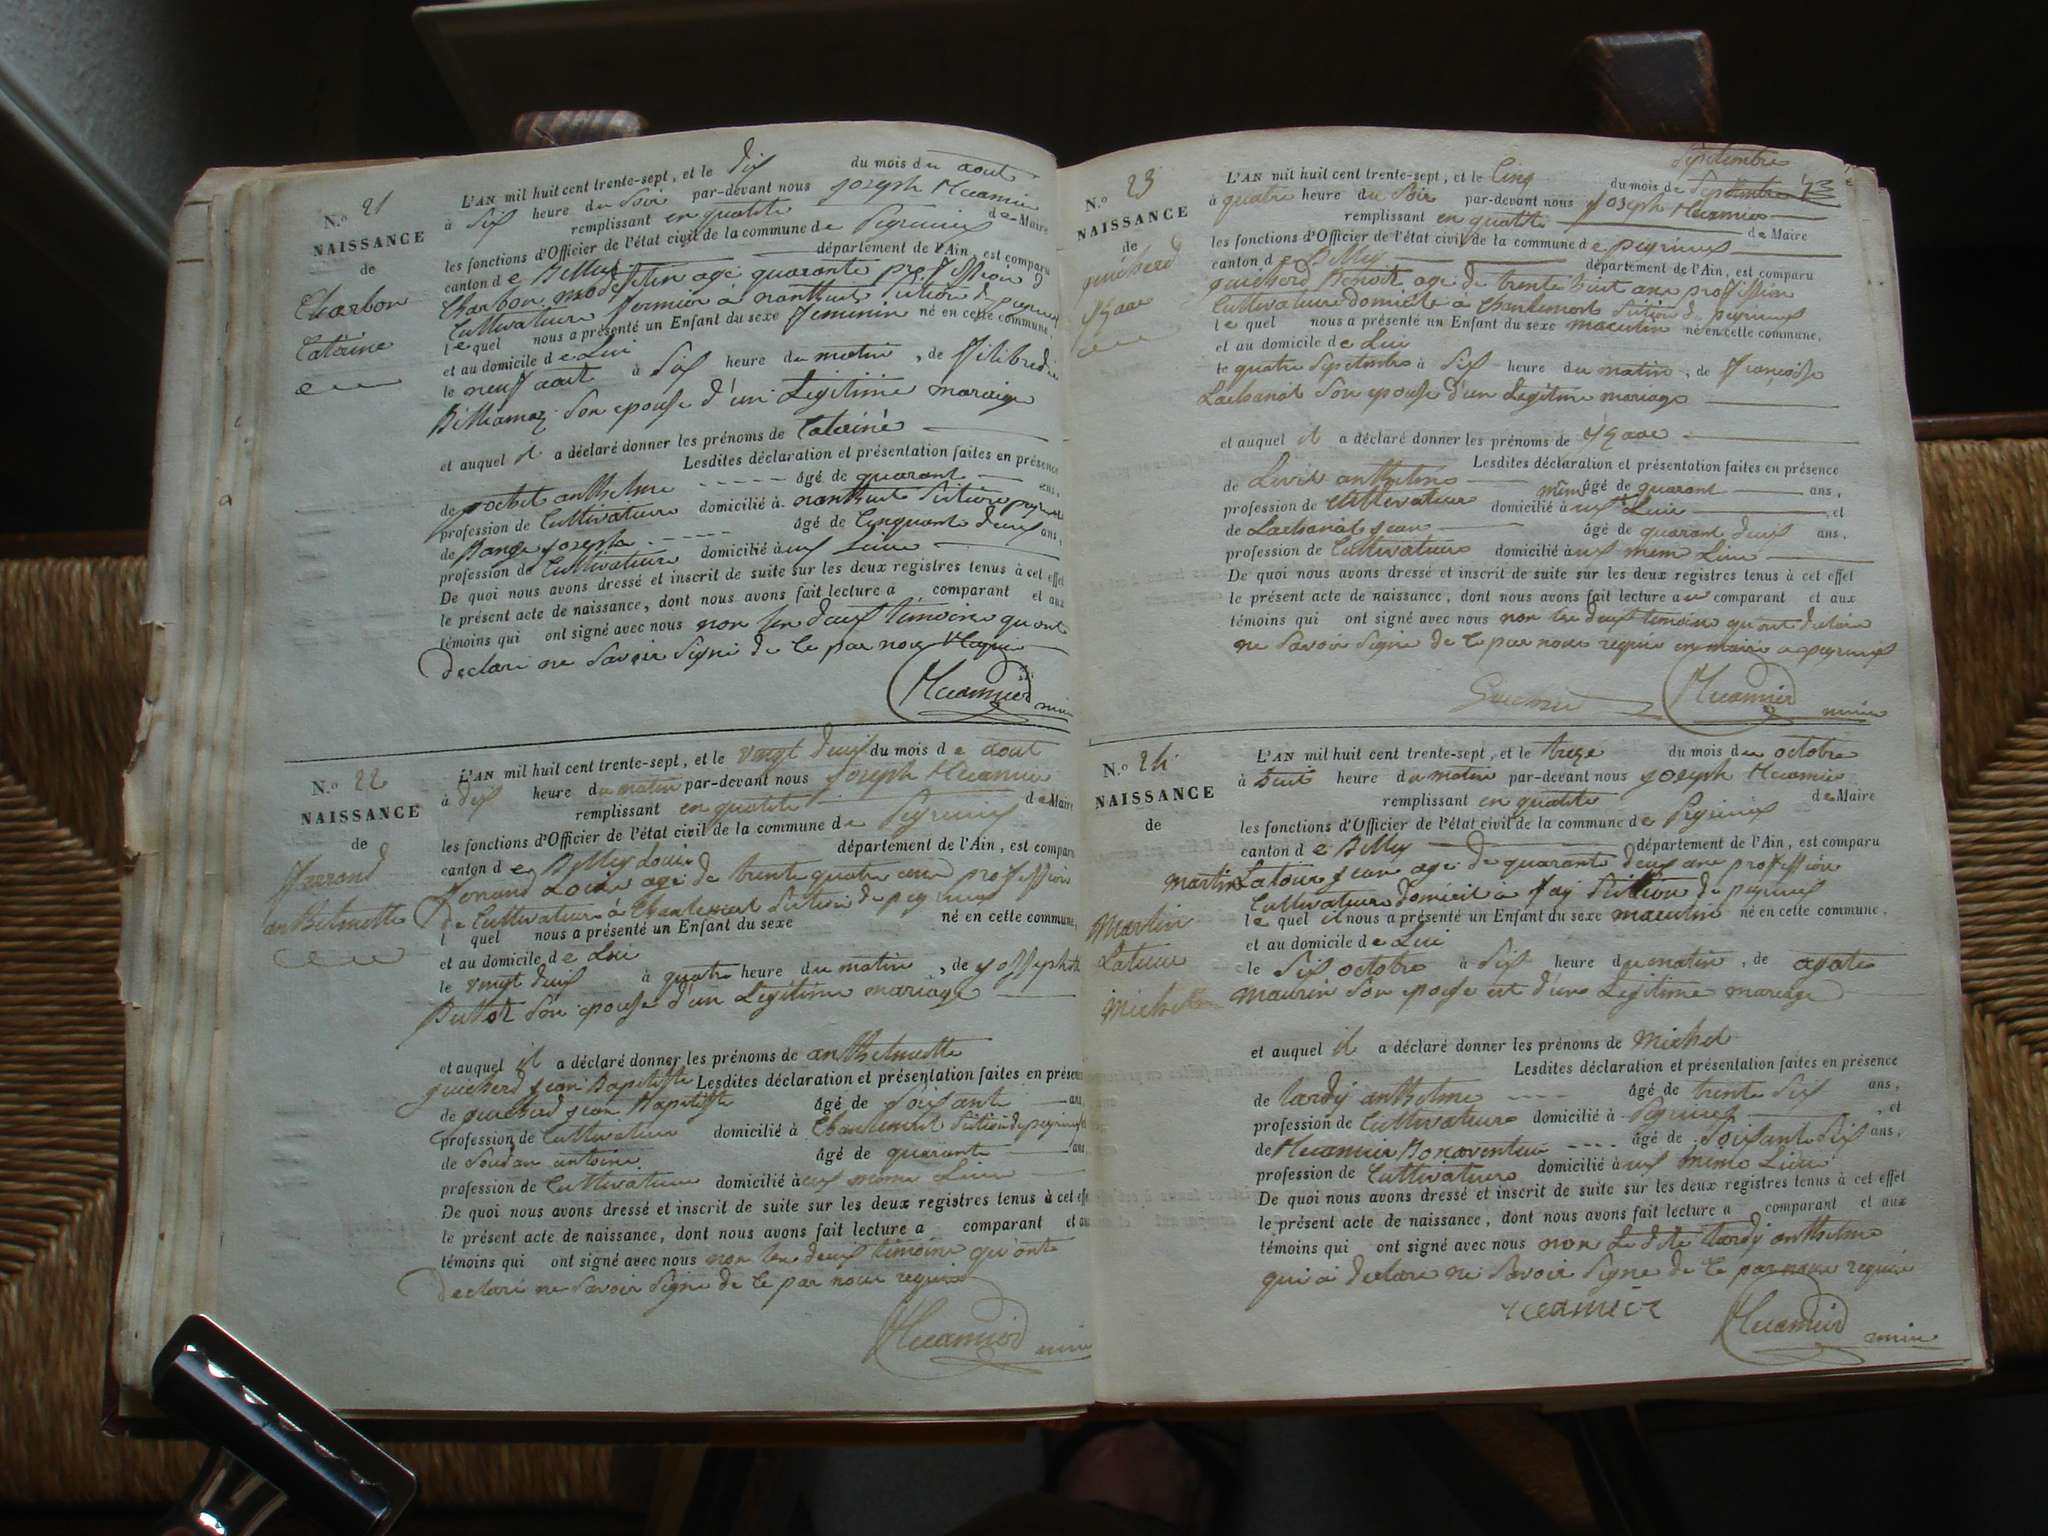 N.° 21
NAISSANCE
de
Charbon
Catérine
L'AN mil huit cent trente-sept, et le dix du mois du aout
à Six heure du Soir par-devant nous Joseph Hucamier
remplissant en qualité de Maire
les fonctions d'Officier de l'état civil de la commune de Peyrieux
canton de Belley département de l'Ain, est comparu
Charbon modestin agé quarante profession d
Cultivateur fermier à nanthuit Section de peyrieux
le quel nous a présenté un Enfant du sexe feminin né en cette commune,
et au domicile de Lui
le neuf aout à Six heure du matin, de
Billiamoz Son epouse d'un Legitime mariage
et auquel il a déclaré donner les prénoms de Catérine
Lesdites déclaration et présentation faites en présence
de anthelme âgé de quarant ans,
profession de Cultivateur domicilié à nanthuit Section
de Joseph âgé de Cinquante deux ans,
profession de Cultivateur domicilié à Lieu
De quoi nous avons dressé et inscrit de suite sur les deux registres tenus à cet effet
le présent acte de naissance, dont nous avons fait lecture a comparant et aux
témoins qui ont signé avec nous non les deux témoins qu ont
Declaré ne Savoir Signé de Ce par nous Requis
Hucamier
N.° 22
NAISSANCE
de
anthelmette
L'AN mil huit cent trente-sept, et le vingt deux du mois de aout
à dix heure du matin par-devant nous Joseph Hucamier
remplissant en qualité de Maire
les fonctions d'Officier de l'état civil de la commune de Peyrieux
canton de Belley département de l'Ain, est comparu
Louis agé de trente quatre ans profession
de Cultivateur à Chantemert Section de peyrieux
l quel nous a présenté un Enfant du sexe né en cette commune,
et au domicile de Lui
le vingt deux à quatre heure du matin, de
Son epouse d'un Legitime mariage
et auquel il a déclaré donner les prénoms de anthelmette
guicherd jean Baptiste Lesdites déclaration et présentation faites en présence
de guicherd jean Baptiste âgé de Soixante ans
profession de Cultivateur domicilié à Section de peyrieux
de antoine âgé de quarante ans
profession de Cultivateur domicilié à même Lieu
De quoi nous avons dressé et inscrit de suite sur les deux registres tenus à cet effet
le présent acte de naissance, dont nous avons fait lecture a comparant et aux
témoins qui ont signé avec nous non les deux témoins qu'ont
Declaré ne Savoir Signe de Ce par nous requis
Hucamier
N.° 23
NAISSANCE
de
guicherd
Septembre
L'AN mil huit cent trente-sept, et le Cinq du mois de Septembre
à quatre heure du Soir par-devant nous Joseph Hucamier
remplissant en qualité de Maire
les fonctions d'Officier de l'état civil de la commune de peyrieux
canton de Belley département de l'Ain, est comparu
guicherd Benoit agé de trente huit ans profession
Cultivateur domicile à Chantemert Section de peyrieux
le quel nous a présenté un Enfant du sexe masculin né en cette commune,
et au domicile de Lui
le quatre Septembre à Six heure du matin, de Françoise
Son epouse d'un Legitime mariage
et auquel il a déclaré donner les prénoms de
Lesdites déclaration et présentation faites en présence
de anthelme âgé de quarant ans,
profession de Cultivateur domicilié à même Lieu, et
de jean âgé de quarant deux ans,
profession de Cultivateur domicilié à mem Lieu
De quoi nous avons dressé et inscrit de suite sur les deux registres tenus à cet effet
le présent acte de naissance, dont nous avons fait lecture au comparant et aux
témoins qui ont signé avec nous non les deux temoins qu ont declaré
ne Savoir Signe de Ce par nous requis en mairie a peyrieux
Hucamier
N.° 24
NAISSANCE
de
Martin
Latour
Michel
L'AN mil huit cent trente-sept, et le treze du mois du octobre
à huit heure du matin par-devant nous Joseph Hucamier
remplissant en qualité de Maire
les fonctions d'Officier de l'état civil de la commune de Peyrieux
canton de Belley département de l'Ain, est comparu
Martin Latour jean agé de quarante deux ans profession
Cultivateur domicil à Fay Section de peyrieux
le quel il nous a présenté un Enfant du sexe masculin né en cette commune,
et au domicile de Lui
le Dix octobre à Six heure du matin, de agate
maurin Son epouse et d'un Legitime mariage
et auquel il a déclaré donner les prénoms de Michel
Lesdites déclaration et présentation faites en présence
de tardy anthelme âgé de trente Six ans,
profession de Cultivateur domicilié à Peyrieux, et
de Hucamier Bonaventure âgé de Soixante Six ans,
profession de Cultivateur domicilié à meme Lieu
De quoi nous avons dressé et inscrit de suite sur les deux registres tenus à cet effet
le présent acte de naissance, dont nous avons fait lecture a comparant et aux
témoins qui ont signé avec nous non Le dite tardy anthelme
qui a declaré ne Savoir Signe de Ce par nous requis
Hucamier